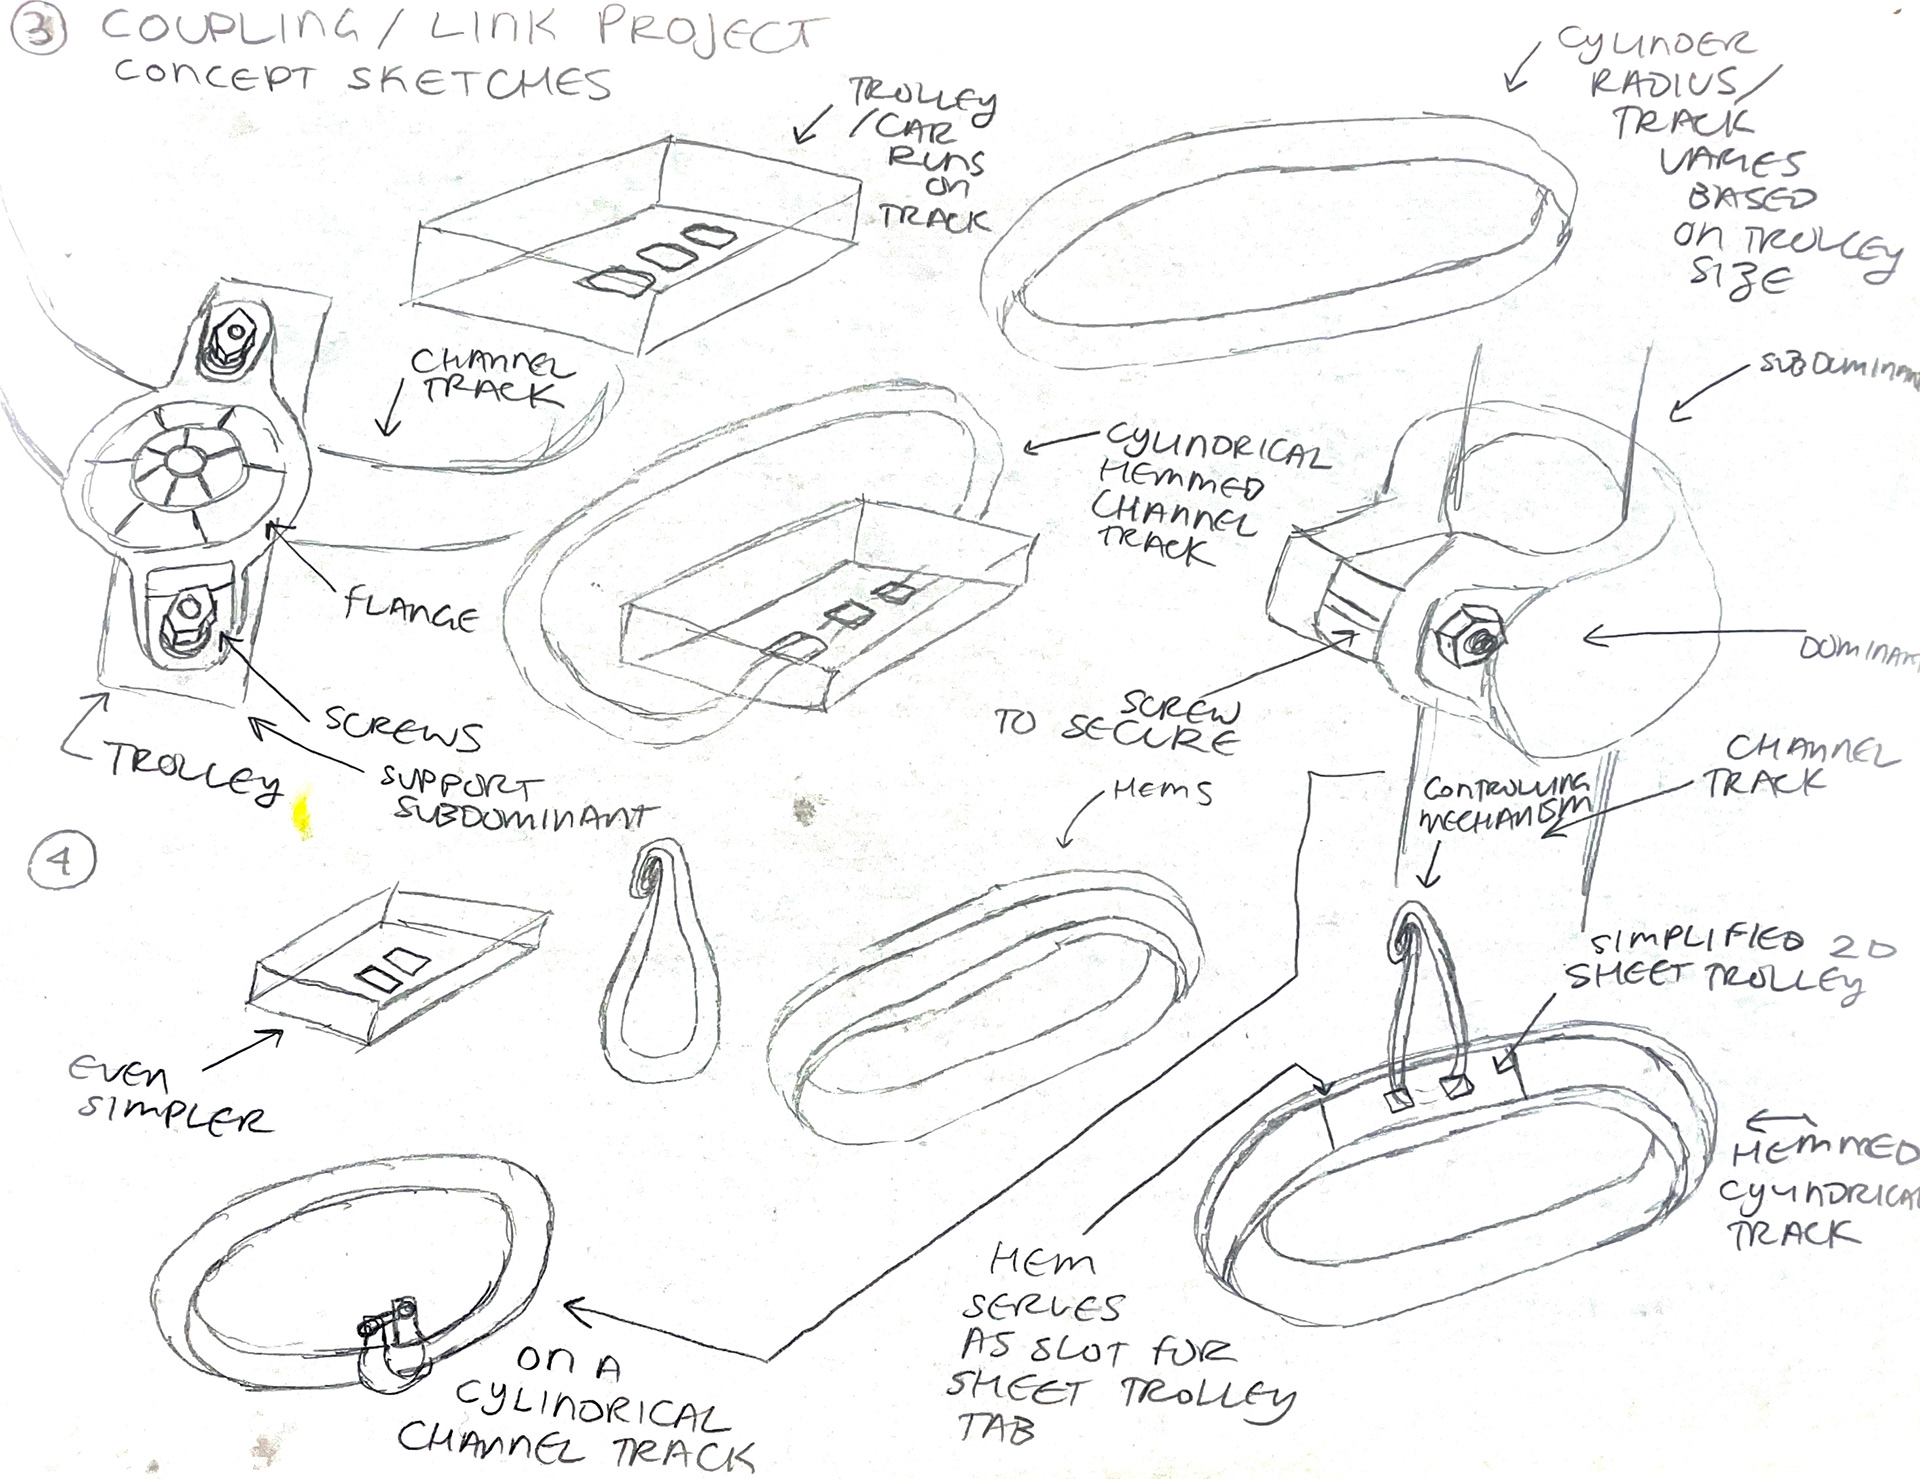 3 COUPLING / LINK PROJECT
CONCEPT SKETCHES
TROLLEY
/CAR
RUNS
ON
TRACK
CYLINDER
RADIUS/
TRACK
VARIES
BASED
ON TROLLEY
SIZE
CHANNEL
TRACK
SUBDOMINAN
CYLINDRICAL
HEMMED
CHANNEL
TRACK
FLANGE
DOMINAN
SCREWS
TROLLEY
SUPPORT
SUBDOMINANT
SCREW
TO SECURE
CHANNEL
TRACK
4
HEMS
CONTROLLING
MECHANISM
SIMPLIFIED 2D
SHEET TROLLEY
EVEN
SIMPLER
HEMMED
CYLINDRICAL
TRACK
HEM
SERVES
AS SLOT FOR
SHEET TROLLEY
TAB
ON A
CYLINDRICAL
CHANNEL TRACK